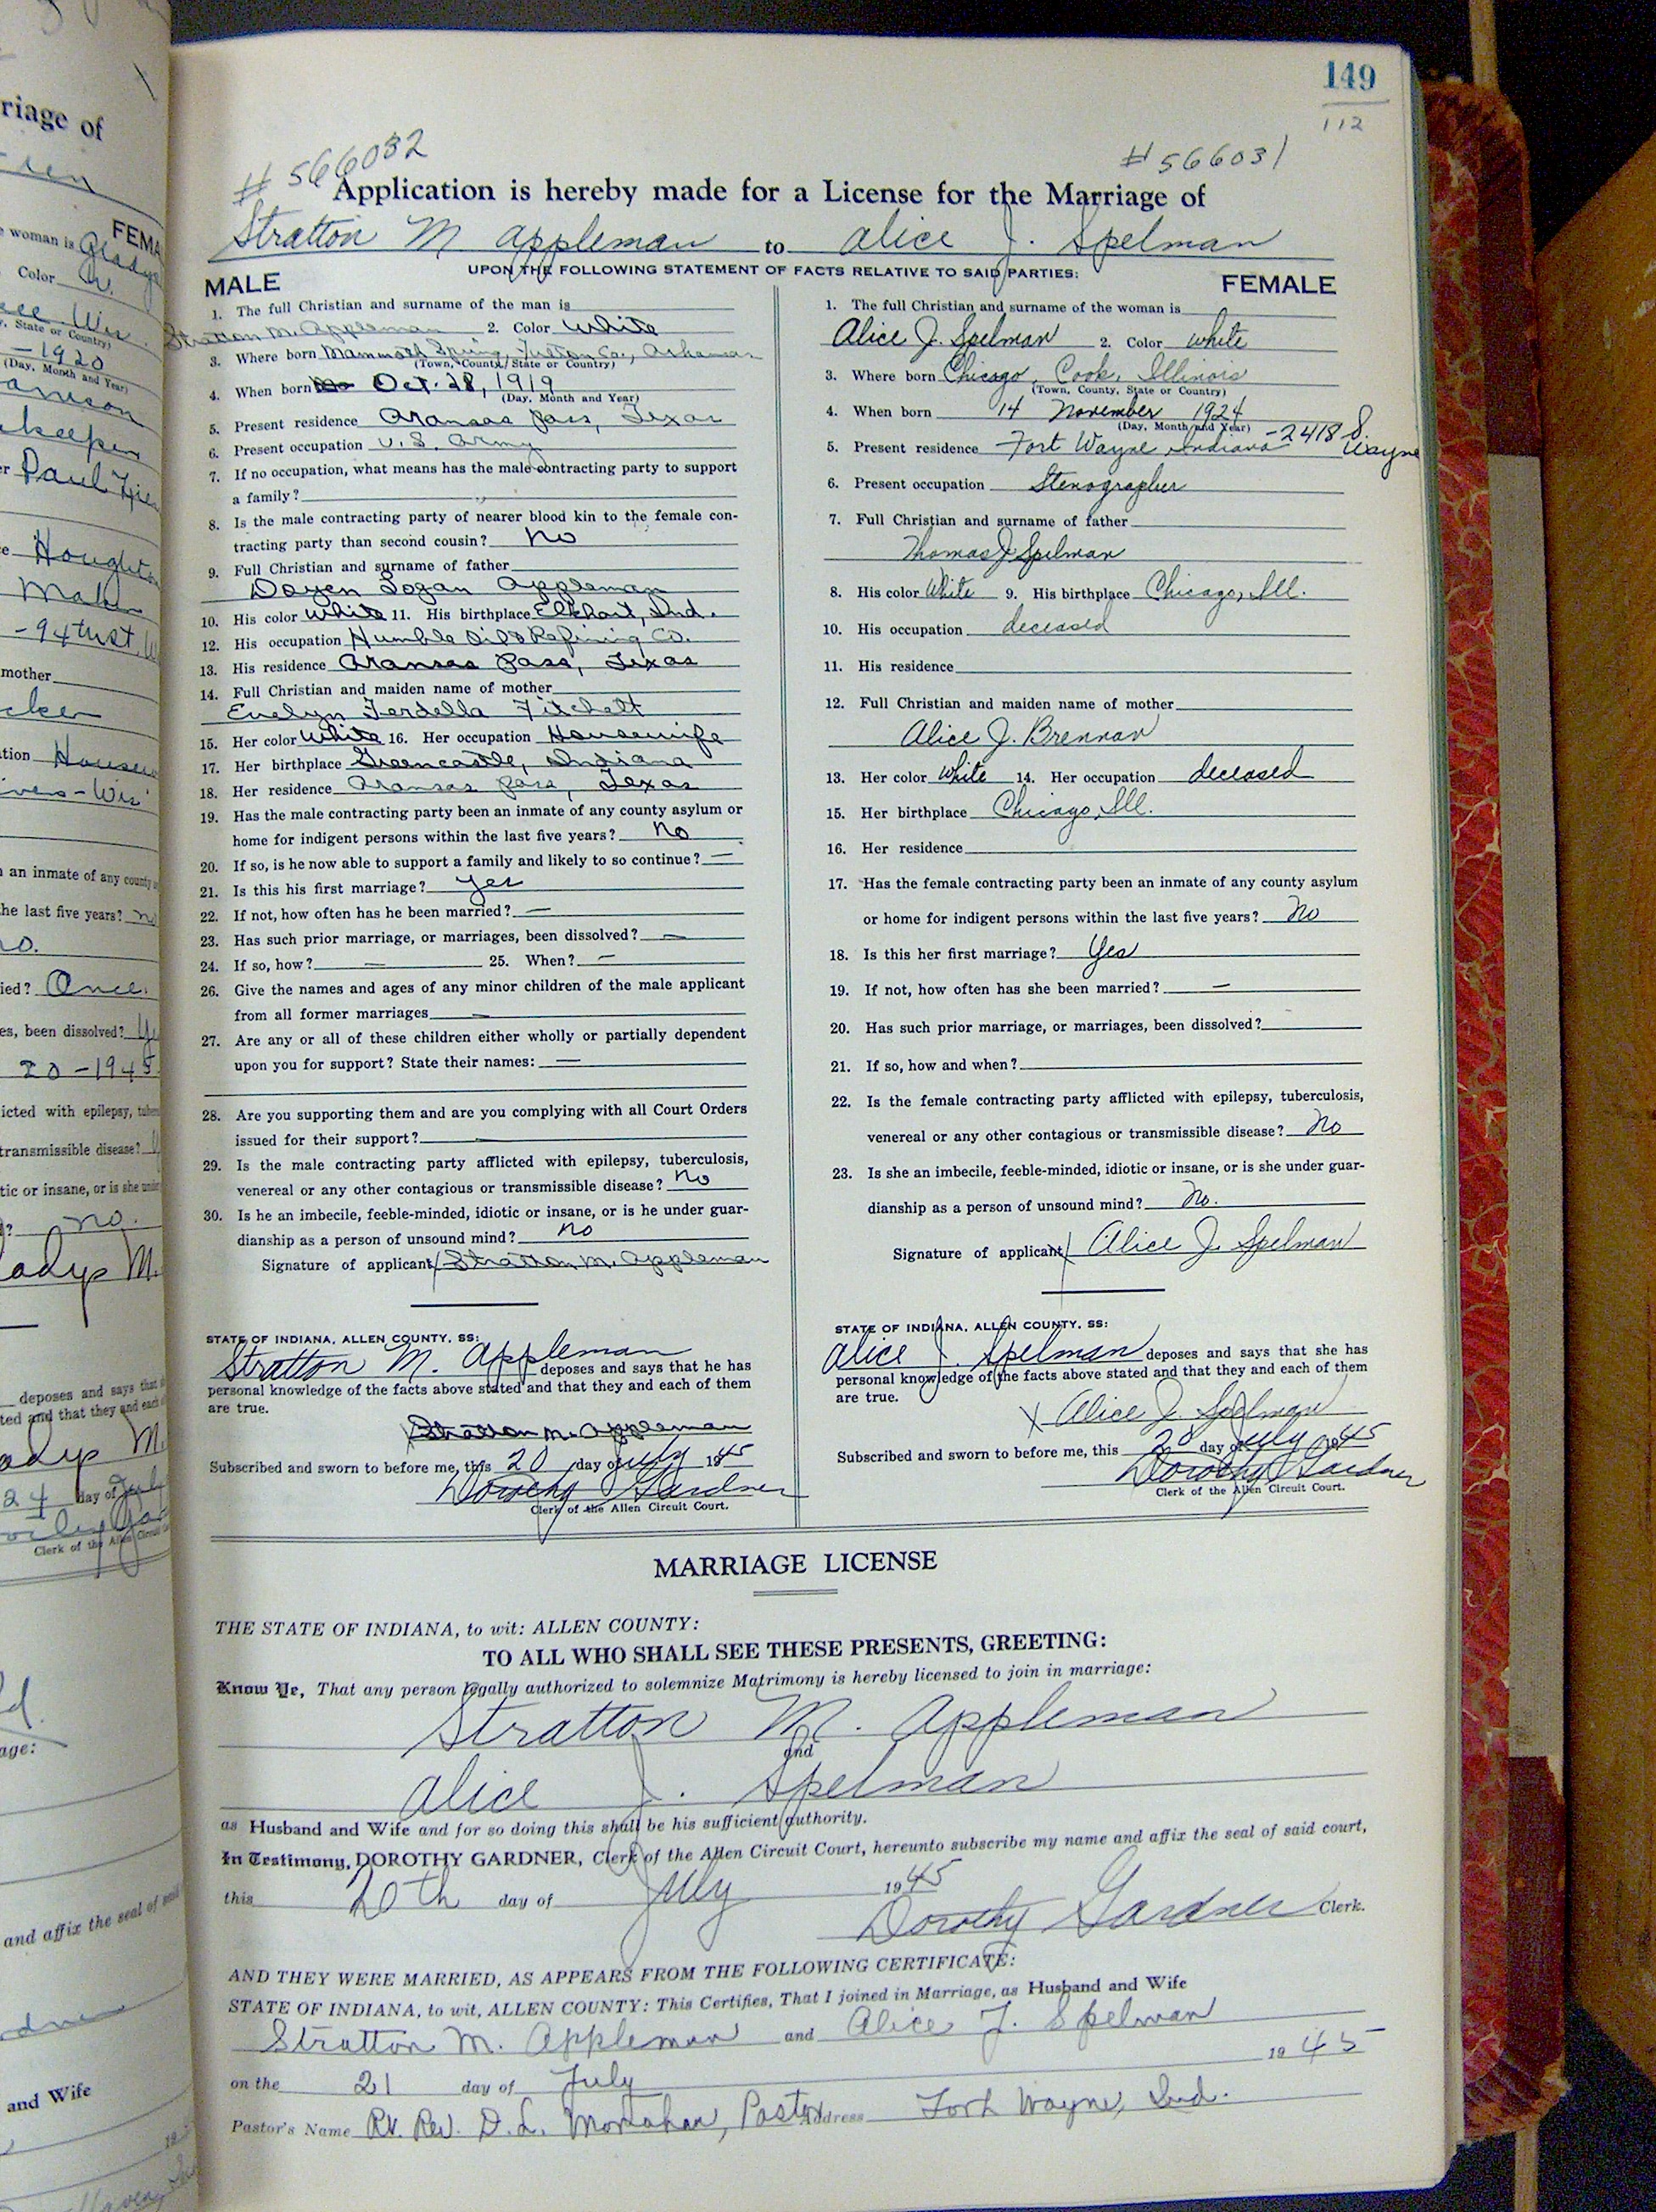 149
112
# 566032
# 566031
Application is hereby made for a License for the Marriage of
Stratton M Appleman to Alice J. Spelman
UPON THE FOLLOWING STATEMENT OF FACTS RELATIVE TO SAID PARTIES:
MALE
1. The full Christian and surname of the man is
Stratton M. Appleman 2. Color White
3. Where born Mammoth Spring, Fulton Co., Arkansas
(Town, County, State or Country)
4. When born Oct. 28, 1919
(Day, Month and Year)
5. Present residence Aransas Pass, Texas
6. Present occupation U.S. Army
7. If no occupation, what means has the male contracting party to support
a family?
8. Is the male contracting party of nearer blood kin to the female con-
tracting party than second cousin? No
9. Full Christian and surname of father
Doyen Logan Appleman
10. His color White 11. His birthplace Elkhart, Ind.
12. His occupation Humble Oil & Refining Co.
13. His residence Aransas Pass, Texas
14. Full Christian and maiden name of mother
Evelyn Ferdella Fitchett
15. Her color White 16. Her occupation Housewife
17. Her birthplace Greencastle, Indiana
18. Her residence Aransas Pass, Texas
19. Has the male contracting party been an inmate of any county asylum or
home for indigent persons within the last five years? No
20. If so, is he now able to support a family and likely to so continue? —
21. Is this his first marriage? Yes
22. If not, how often has he been married? —
23. Has such prior marriage, or marriages, been dissolved? —
24. If so, how? — 25. When? —
26. Give the names and ages of any minor children of the male applicant
from all former marriages —
27. Are any or all of these children either wholly or partially dependent
upon you for support? State their names: —
28. Are you supporting them and are you complying with all Court Orders
issued for their support? —
29. Is the male contracting party afflicted with epilepsy, tuberculosis,
venereal or any other contagious or transmissible disease? No
30. Is he an imbecile, feeble-minded, idiotic or insane, or is he under guar-
dianship as a person of unsound mind? No
Signature of applicant Stratton M. Appleman
STATE OF INDIANA, ALLEN COUNTY, SS:
Stratton M. Appleman deposes and says that he has
personal knowledge of the facts above stated and that they and each of them
are true.
X Stratton M. Appleman
Subscribed and sworn to before me, this 20 day of July 1945
Dorothy Gardner
Clerk of the Allen Circuit Court.
FEMALE
1. The full Christian and surname of the woman is
Alice J. Spelman 2. Color white
3. Where born Chicago, Cook, Illinois
(Town, County, State or Country)
4. When born 14 November 1924
(Day, Month and Year)
5. Present residence Fort Wayne, Indiana - 2418 S. Wayne
6. Present occupation Stenographer
7. Full Christian and surname of father
Thomas J Spelman
8. His color White 9. His birthplace Chicago, Ill.
10. His occupation deceased
11. His residence
12. Full Christian and maiden name of mother
Alice J. Brennan
13. Her color white 14. Her occupation deceased
15. Her birthplace Chicago, Ill.
16. Her residence
17. Has the female contracting party been an inmate of any county asylum
or home for indigent persons within the last five years? No
18. Is this her first marriage? Yes
19. If not, how often has she been married? —
20. Has such prior marriage, or marriages, been dissolved?
21. If so, how and when?
22. Is the female contracting party afflicted with epilepsy, tuberculosis,
venereal or any other contagious or transmissible disease? No
23. Is she an imbecile, feeble-minded, idiotic or insane, or is she under guar-
dianship as a person of unsound mind? No.
Signature of applicant Alice J. Spelman
STATE OF INDIANA, ALLEN COUNTY, SS:
Alice J. Spelman deposes and says that she has
personal knowledge of the facts above stated and that they and each of them
are true.
X Alice J. Spelman
Subscribed and sworn to before me, this 20 day of July 1945
Dorothy Gardner
Clerk of the Allen Circuit Court.
MARRIAGE LICENSE
THE STATE OF INDIANA, to wit: ALLEN COUNTY:
TO ALL WHO SHALL SEE THESE PRESENTS, GREETING:
Know Ye, That any person legally authorized to solemnize Matrimony is hereby licensed to join in marriage:
Stratton M. Appleman
and
Alice J. Spelman
as Husband and Wife and for so doing this shall be his sufficient authority.
In Testimony, DOROTHY GARDNER, Clerk of the Allen Circuit Court, hereunto subscribe my name and affix the seal of said court,
this 20th day of July 1945
Dorothy Gardner Clerk.
AND THEY WERE MARRIED, AS APPEARS FROM THE FOLLOWING CERTIFICATE:
STATE OF INDIANA, to wit, ALLEN COUNTY: This Certifies, That I joined in Marriage, as Husband and Wife
Stratton M. Appleman and Alice J. Spelman
on the 21 day of July 1945
Pastor's Name Rt. Rev. D. L. Monahan, Pastor Address Fort Wayne, Ind.